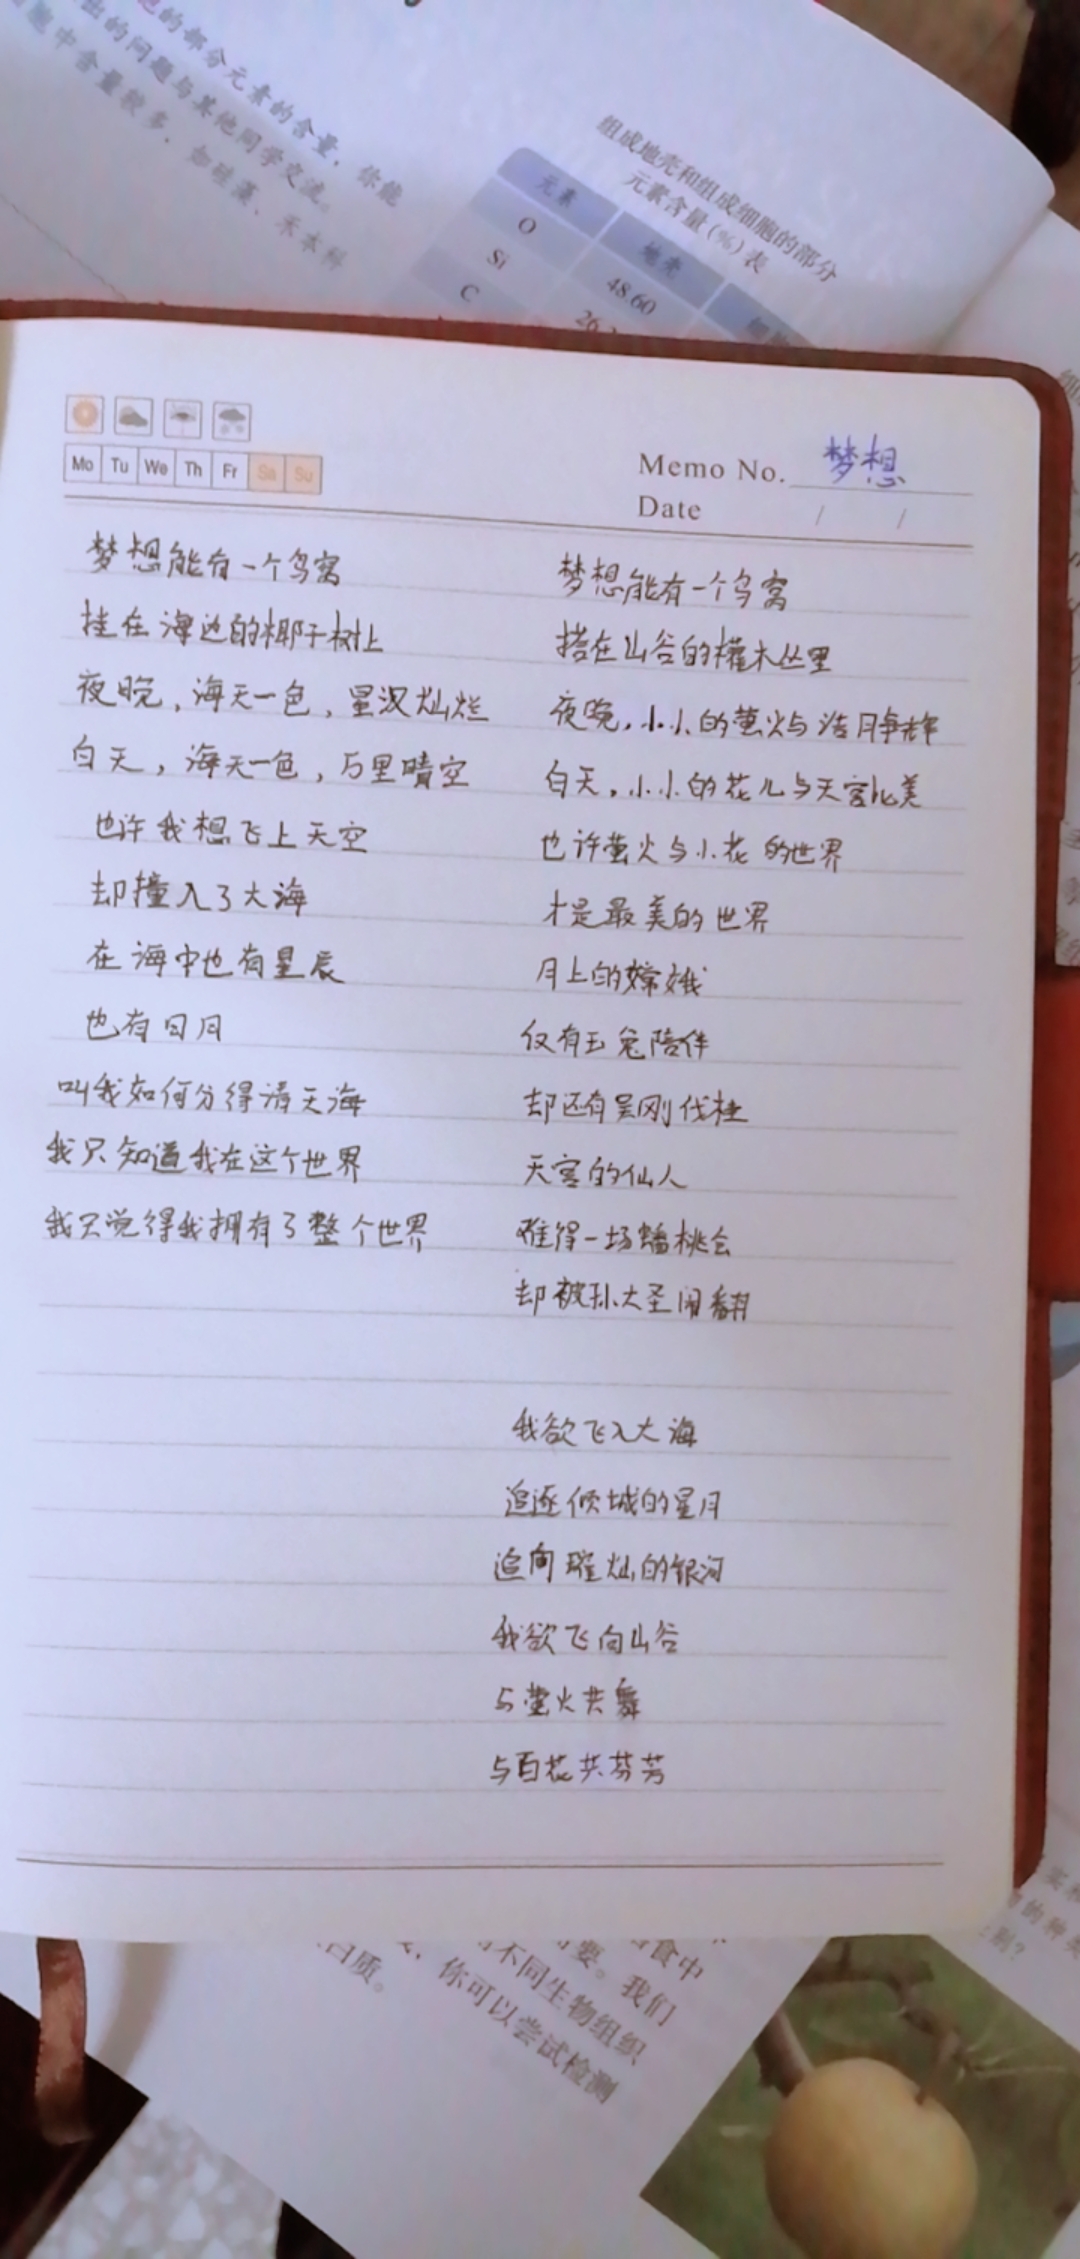 的部分元素的含量，你能
出的问题与其他同学交流。
胞中含量较多，如硅藻、禾本科
组成地壳和组成细胞的部分
元素含量（%）表
元素
地壳
O
48.60
Si
C
Mo Tu We Th Fr Sa Su
Memo No. 梦想
Date / /
梦想能有一个鸟窝
挂在海边的椰子树上
夜晚，海天一色，星汉灿烂
白天，海天一色，万里晴空
也许我想飞上天空
却撞入了大海
在海中也有星辰
也有日月
叫我如何分得清天海
我只知道我在这个世界
我只觉得我拥有了整个世界
梦想能有一个鸟窝
搭在山谷的灌木丛里
夜晚，小小的萤火与浩月争辉
白天，小小的花儿与天宫比美
也许萤火与小花的世界
才是最美的世界
月上的嫦娥
仅有玉兔陪伴
却还有吴刚伐桂
天宫的仙人
难得一场蟠桃会
却被孙大圣闹翻
我欲飞入大海
追逐倾城的星月
追向璀灿的银河
我欲飞向山谷
与萤火共舞
与百花共芬芳
食中
要。我们
不同生物组织
，你可以尝试检测
白质。
的种类